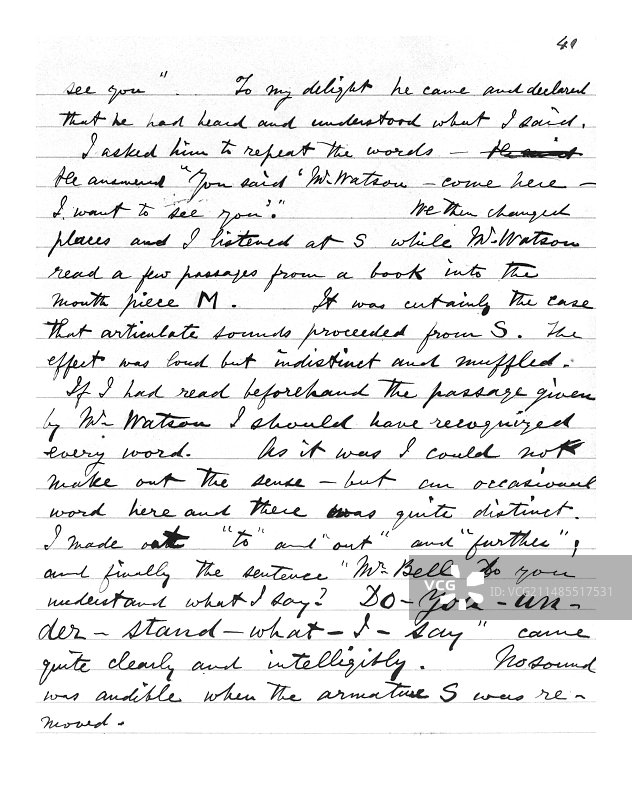 41
see you". To my delight he came and declared
that he had heard and understood what I said.
I asked him to repeat the words —
He answered "You said 'Mr Watson — come here —
I want to see you'." We then changed
places and I listened at S while Mr Watson
read a few passages from a book into the
mouth piece M. It was certainly the case
that articulate sounds proceeded from S. The
effect was loud but indistinct and muffled.
If I had read beforehand the passage given
by Mr Watson I should have recognized
every word. As it was I could not
make out the sense — but an occasional
word here and there was quite distinct.
I made out "to" and "out" and "further";
and finally the sentence "Mr Bell Do you
understand what I say? Do-you-un-
der-stand-what-I-say" came
quite clearly and intelligibly. No sound
was audible when the armature S was re-
moved.
VCG
ID:VCG211485517531